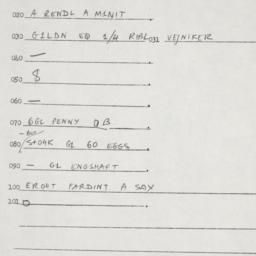 020 A RENDL A MINIT
030 GILDN EQ 1/4 RIAL 031 VEJNIKER
040 —
050 8
060 —
070 GGL PENNY QB
080 STOYK G1 60 EGGS
090 — G1 ENGSHAFT
100 ERGUT FARDINT A SAX
101 O